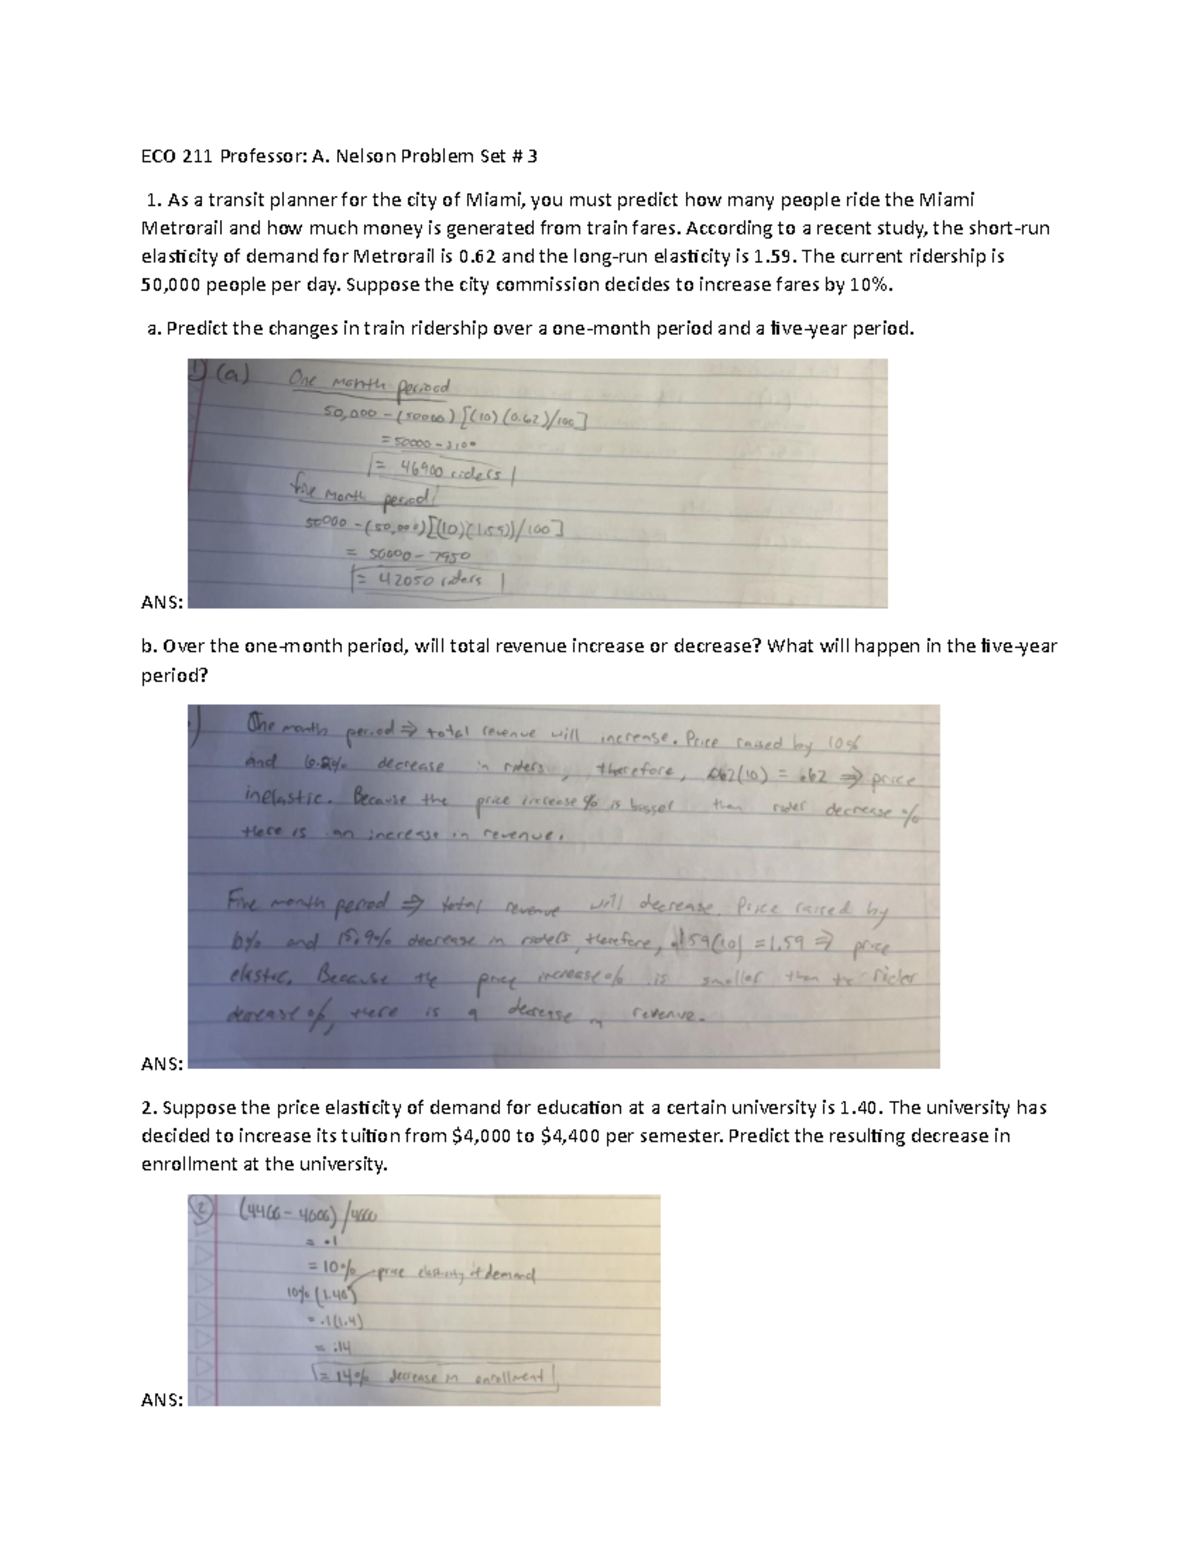 ECO 211 Professor: A. Nelson Problem Set # 3
1. As a transit planner for the city of Miami, you must predict how many people ride the Miami
Metrorail and how much money is generated from train fares. According to a recent study, the short-run
elasticity of demand for Metrorail is 0.62 and the long-run elasticity is 1.59. The current ridership is
50,000 people per day. Suppose the city commission decides to increase fares by 10%.
a. Predict the changes in train ridership over a one-month period and a five-year period.
1) (a) One month period
50,000 - (50000) [(10) (0.62)/100]
= 50000 - 3100
= 46900 riders
five month period:
50000 - (50,000)[(10)(1.59)/100]
= 50000 - 7950
= 42050 riders
ANS:
b. Over the one-month period, will total revenue increase or decrease? What will happen in the five-year
period?
One month period ⇒ total revenue will increase. Price raised by 10%
and 6.2% decrease in riders, therefore, .062(10) = .62 ⇒ price
inelastic. Because the price increase % is bigger than rider decrease %
there is an increase in revenue.
Five month period ⇒ total revenue will decrease. Price raised by
and 15.9% decrease in riders, therefore, .159(10) = 1.59 ⇒ price
elastic. Because the price increase % is smaller than the rider
decrease %, there is a decrease in revenue.
ANS:
2. Suppose the price elasticity of demand for education at a certain university is 1.40. The university has
decided to increase its tuition from $4,000 to $4,400 per semester. Predict the resulting decrease in
enrollment at the university.
2 (4400 - 4000) /4000
= .1
= 10% price elasticity of demand
10% (1.40)
= .1(1.4)
= .14
= 14% decrease in enrollment
ANS: